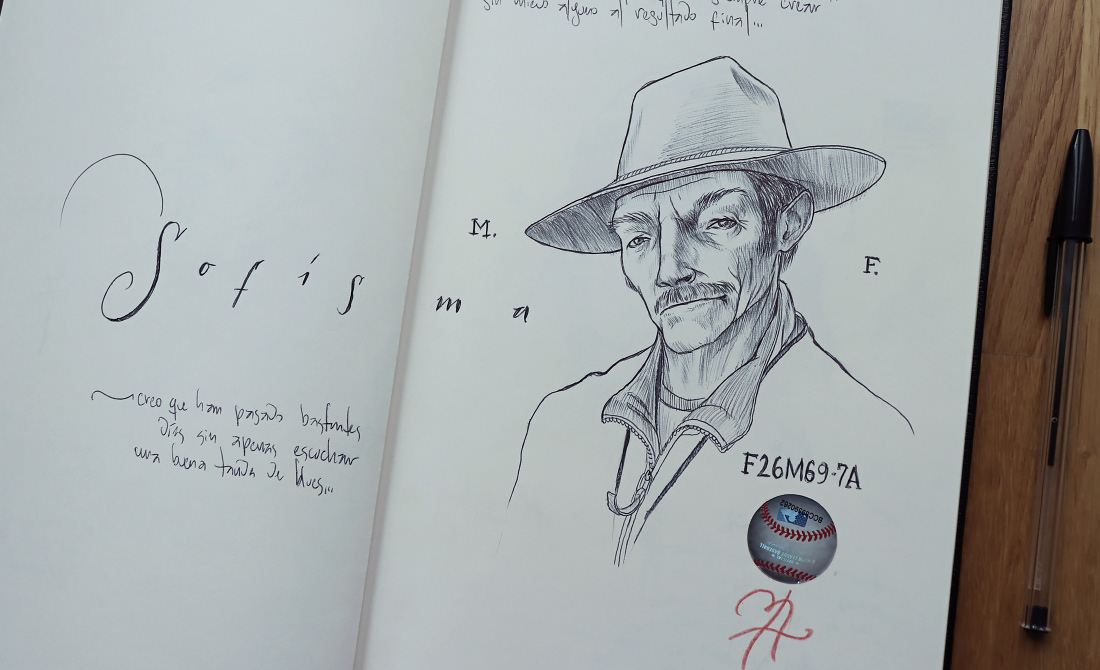 crear
sin miedo alguno al resultado final...
M.
F.
Sofisma
creo que han pasado bastantes
días sin apenas escuchar
una buena tanda de blues...
F26M69-7A